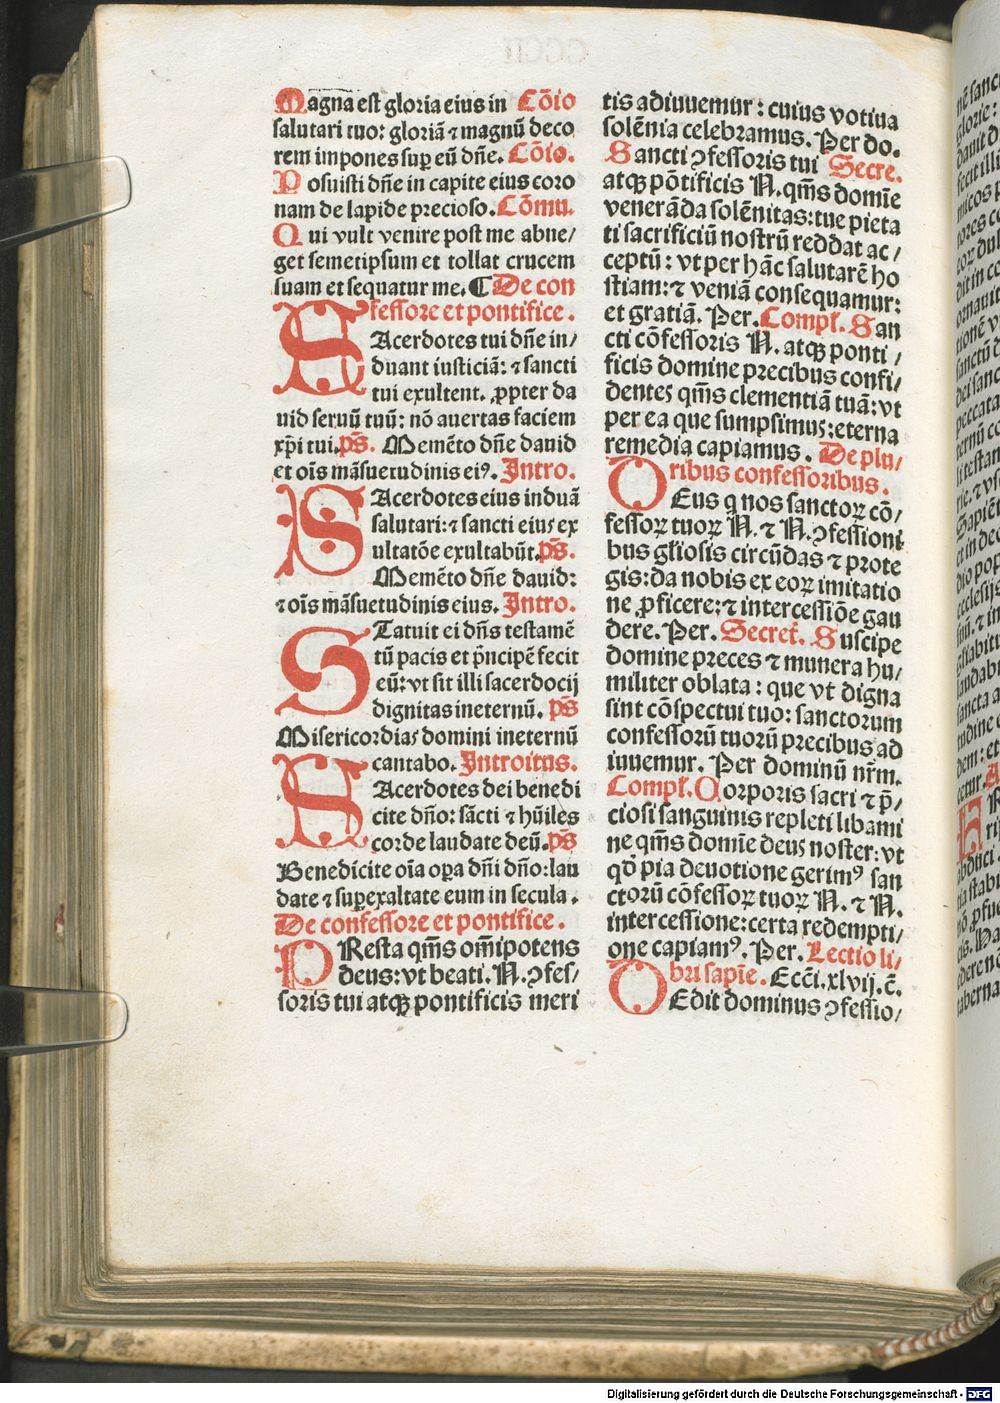 Magna est gloria eius in Cōio
salutari tuo: gloriā ⁊ magnū deco
rem impones sup eū dn̄e. Cōio.
Posuisti dn̄e in capite eius coro
nam de lapide precioso. Cōmu.
Qui vult venire post me abne/
get semetipsum et tollat crucem
suam et sequatur me. ¶ De con
fessore et pontifice.
SAcerdotes tui dn̄e in/
duant iusticiā: ⁊ sancti
tui exultent. ꝓpter da
uid seruū tuū: nō auertas faciem
xp̄i tui. ps̄. Memēto dn̄e dauid
et oīs māsuetudinis eiꝰ. Intro.
SAcerdotes eius induā
salutari: ⁊ sancti eius ex
ultatōe exultabūt. ps̄.
Memēto dn̄e dauid:
⁊ oīs māsuetudinis eius. Intro.
STatuit ei dn̄s testamē
tū pacis et pn̄cipē fecit
eū: vt sit illi sacerdocij
dignitas ineternū. ps̄
Misericordias domini ineternū
cantabo. Introitus.
SAcerdotes dei benedi
cite dn̄o: sācti ⁊ hūiles
corde laudate deū. ps̄
Benedicite oīa oꝑa dn̄i dn̄o: lau
date ⁊ suꝑexaltate eum in secula.
De confessore et pontifice.
PResta qm̄s om̄ipotens
deus: vt beati. N. ꝯfes/
soris tui atqꝫ pontificis meri
tis adiuuemur: cuius votiua
solēnia celebramus. Per do.
Sancti ꝯfessoris tui Secre.
atqꝫ pōtificis N. qm̄s domīe
venerāda solēnitas: tue pieta
ti sacrificiū nostrū reddat ac/
ceptū: vt per hāc salutarē ho
stiam: ⁊ veniā consequamur:
et gratiā. Per. Compl̄. San
cti cōfessoris N. atqꝫ ponti/
ficis domine precibus confi/
dentes qm̄s clementiā tuā: vt
per ea que sumpsimus: eterna
remedia capiamus. De plu/
ribus confessoribus.
DEus q nos sanctoꝝ cō/
fessoꝝ tuoꝝ N. ⁊ N. ꝯfessioni
bus gl̄iosis circūdas ⁊ prote
gis: da nobis ex eoꝝ imitatio
ne ꝓficere: ⁊ intercessiōe gau
dere. Per. Secret. Suscipe
domine preces ⁊ munera hu/
militer oblata: que vt digna
sint cōspectui tuo: sanctorum
confessorū tuorū precibus ad
iuuemur. Per dominū nr̄m.
Compl̄. Corporis sacri ⁊ p̄/
ciosi sanguinis repleti libami
ne qm̄s domīe deus noster: vt
qd̄ pia deuotione gerimꝰ san
ctorū cōfessoꝝ tuoꝝ N. ⁊ N.
intercessione: certa redempti/
one capiamꝰ. Per. Lectio li/
bri sapīe. Ecc̄i. xlvij. c̄.
DEdit dominus ꝯfessio/
Digitalisierung gefördert durch die Deutsche Forschungsgemeinschaft - DFG